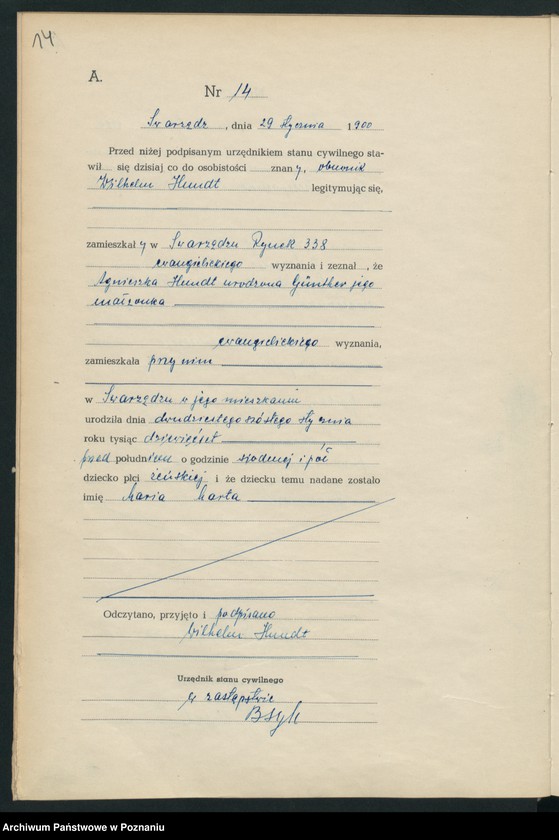 14
A.
Nr 14
Swarzędz, dnia 29 stycznia 1900
Przed niżej podpisanym urzędnikiem stanu cywilnego sta-
wił się dzisiaj co do osobistości znany, obuwnik
Wilhelm Hundt legitymując się,
zamieszkały w Swarzędzu Rynek 338
ewangielickiego wyznania i zeznał, że
Agnieszka Hundt urodzona Günther jego
małżonka
ewangielickiego wyznania,
zamieszkała przy nim
w Swarzędzu w jego mieszkaniu
urodziła dnia dwudziestego szóstego stycznia
roku tysiąc dziewięćset
przed południem o godzinie siódmej i pół
dziecko płci żeńskiej i że dziecku temu nadane zostało
imię Maria Marta
Odczytano, przyjęto i podpisano
Wilhelm Hundt
Urzędnik stanu cywilnego
w zastępstwie
Archiwum Państwowe w Poznaniu